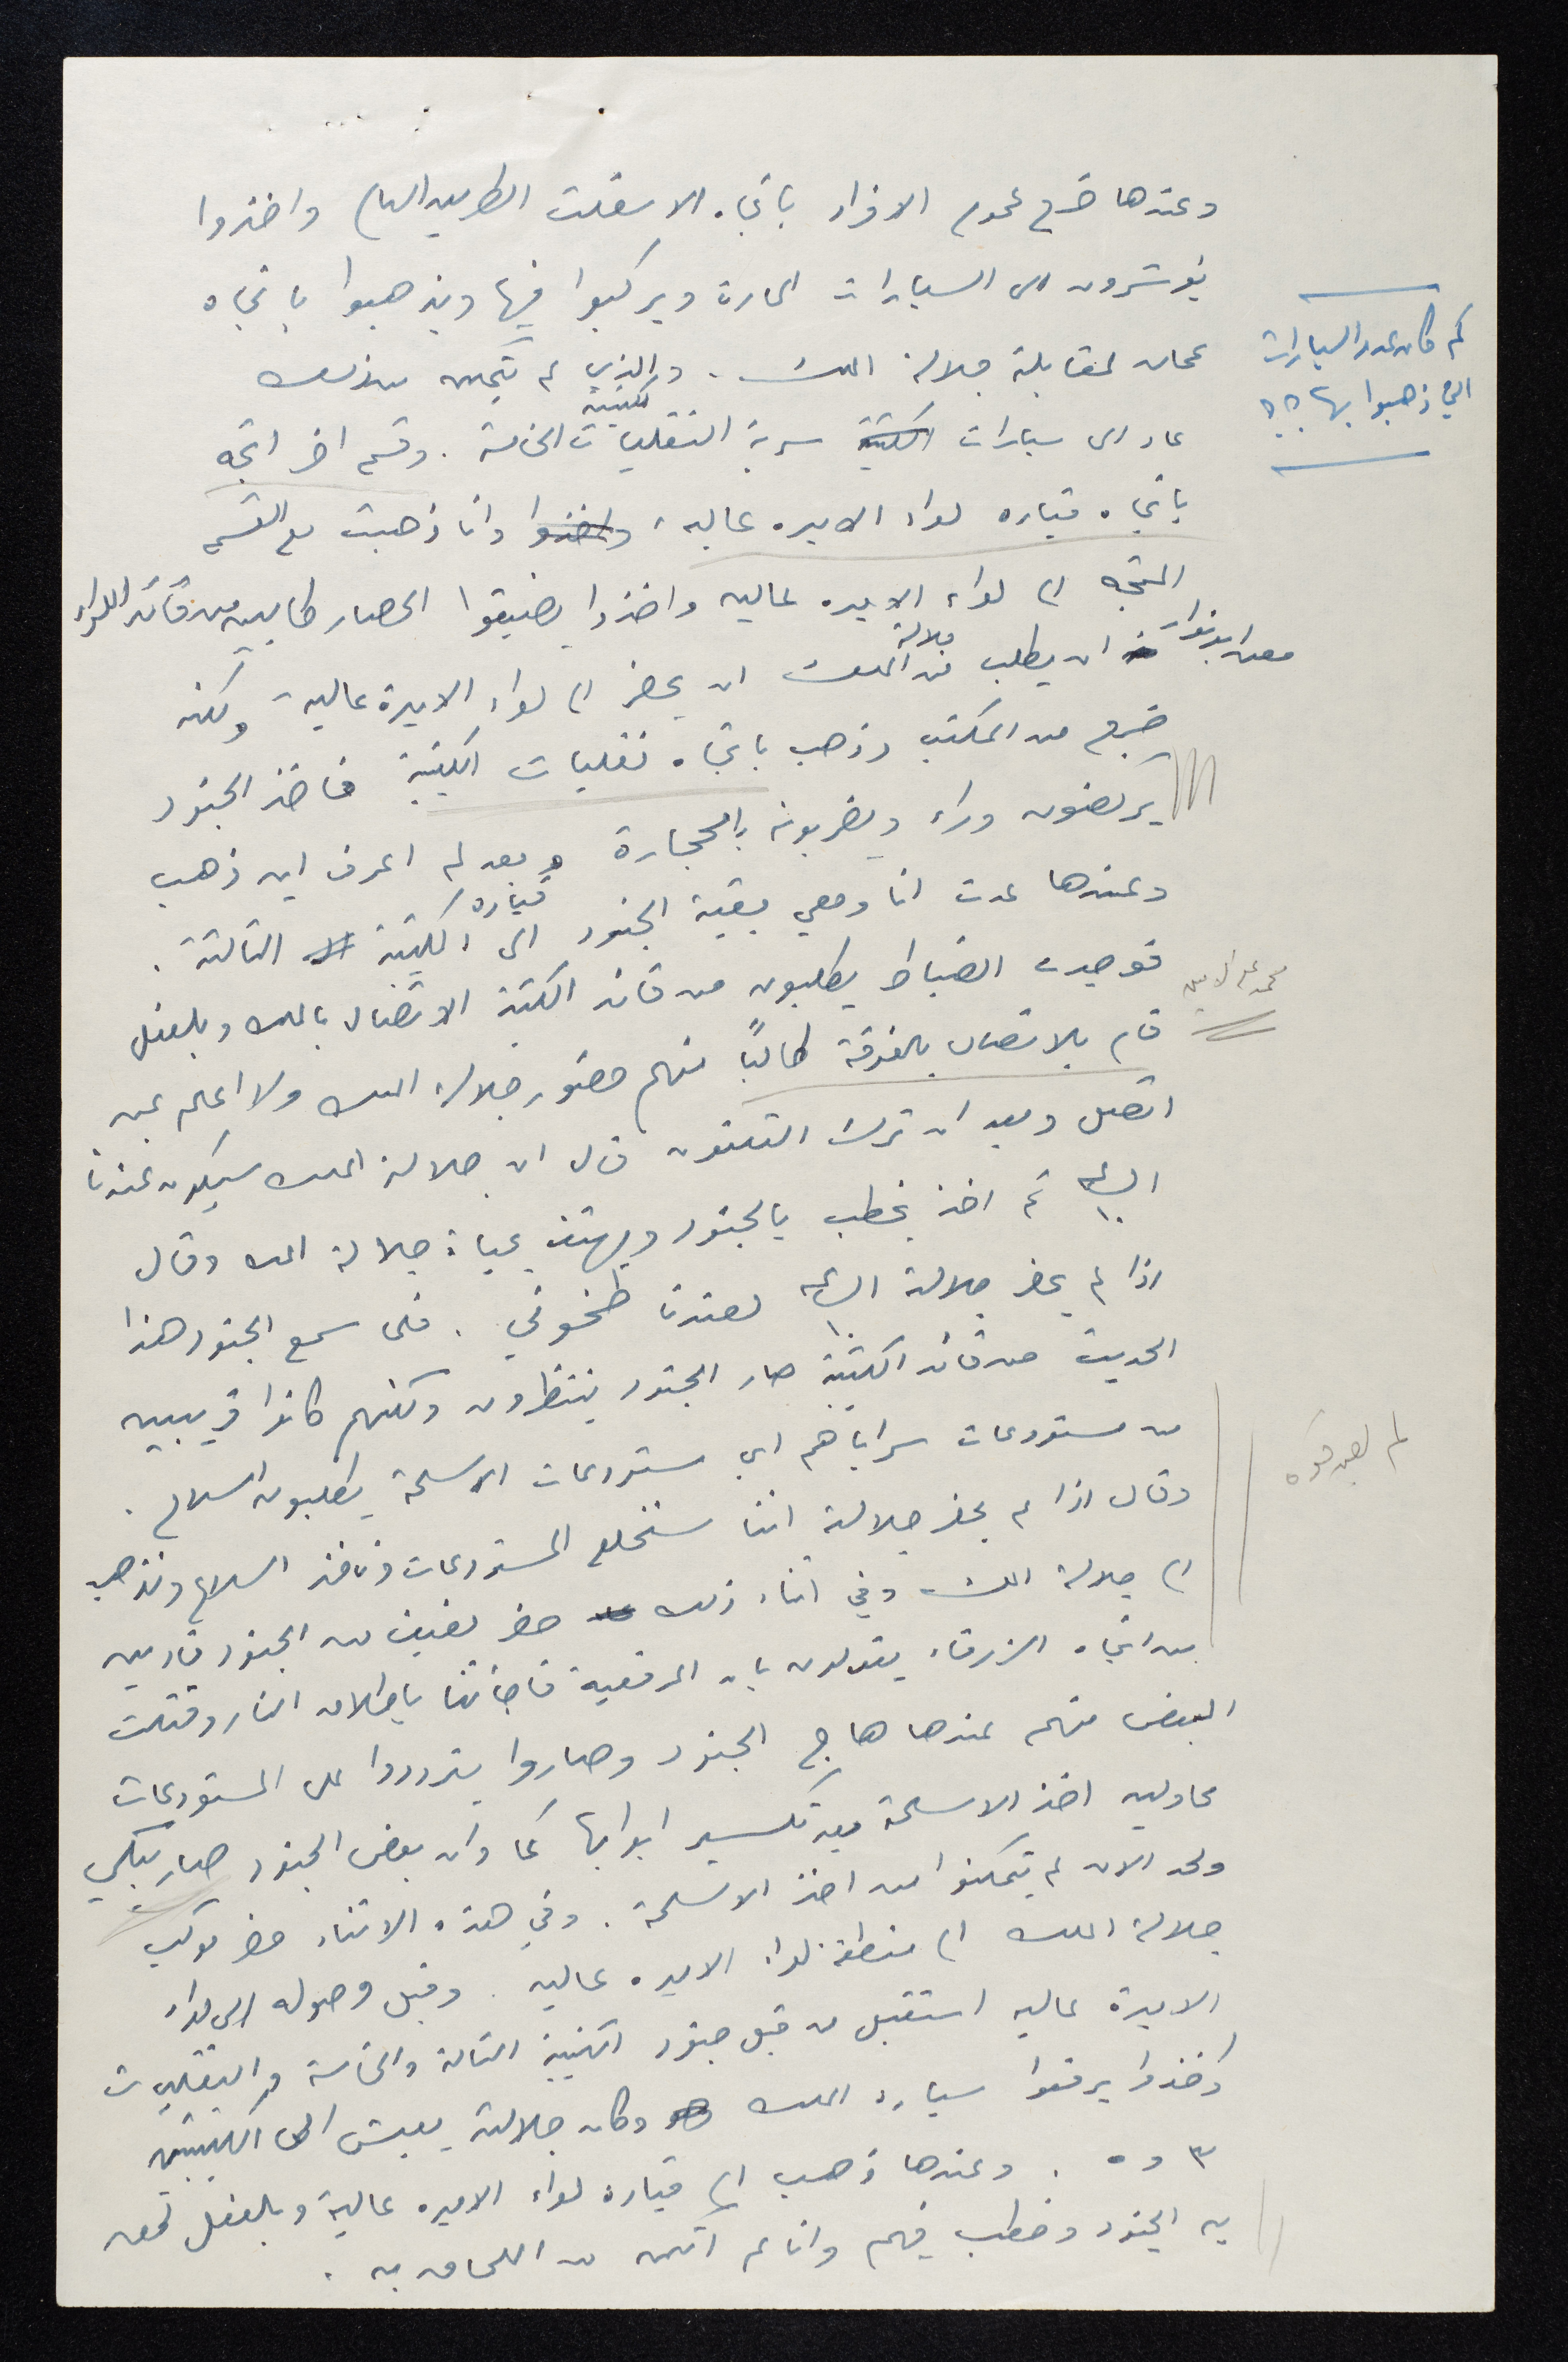 وعندها خرج عموم الافراد باتجاه الاسفلت الطريق العام واخذوا
يؤشرون الى السيارات المارة ويركبوا فيها ويذهبوا باتجاه
عمان لمقابلة جلالة الملك . والذي لم يتمكن من ذلك
عاد الى سيارات الكتيبة سرية النقليات لكتيبة الخامسة . وقسم اخر اتجه
باتجاه قياده لواء الاميره عاليه ، واخذوا وانا ذهبت مع القسم
المتجه الى لواء الاميره عاليه واخذوا يضيقوا الحصار طالبين من قائد اللواء
معن ابو نوار ان يطلب من جلالة الملك ان يحضر الى لواء الاميرة عالية ولكنه
خرج من المكتب وذهب باتجاه نقليات الكتيبة فاخذ الجنود
يركضون وراءه ويضربونه بالحجارة وبعد لم اعرف اين ذهب
وعندها عدت انا ومعي بقية الجنود الى قياده الكتيبة الثالثة .
فوجدت الضباط يطلبون من قائد الكتيبة الاتصال بالملك وبالفعل
قام بالاتصال بالفرقة طالباً منهم حضور جلالة الملك ولا اعلم بمن
اتصل وبعد ان ترك التلفون قال ان جلالة الملك سيكون عندنا
الساعة ١٠ ثم اخذ يخطب بالجنود ويهتف بحياة جلالة الملك وقال
اذا لم يحضر جلالته الساعة ١٠ لعندنا طخوني . فلما سمع الجنود هذا
الحديث من قائد الكتيبة صار الجنود ينتظرون ولكنهم كانوا قريبين
من مستودعات سراياهم اي مستودعات الاسلحة يطلبون السلاح .
وقال اذا لم يحضر جلالته اننا سنخلع المستودعات ونأخذ السلاح ونذهب
الى جلالة الملك وفي اثناء ذلك حضر لفيف من الجنود قادمين
من اتجاه الزرقاء يقولون بان المدفعية فاجأتنا باطلاق النار وقتلت
البعض منهم عندها هاج الجنود وصاروا يترددوا على المستودعات
محاولين اخذ الاسلحة بعد تكسير ابوابها كما وان بعض الجنود صار يبكي
ولحد الان لم يتمكنوا من اخذ الاسلحة . وفي هذه الاثناء حضر موكب
جلالة الملك الى منطقة لواء الاميره عاليه . وقبل وصوله الى لواء
الاميرة عاليه استقبل من قبل جنود الكتيبة الثالثة والخامسة والنقليات
واخذوا يرفعوا سيارة الملك وكان جلالته يعيش الكتيبتين
٣ و ٥ . وعندها ذهب الى قيادة لواء الاميره عالية وبالفعل لحق
به الجنود وخطب فيهم وانا لم اتمكن من اللحاق به .
كم كان عدد السيارات
التي ذهبوا بها ؟؟
محمد علي الامين
لم يعرفوه